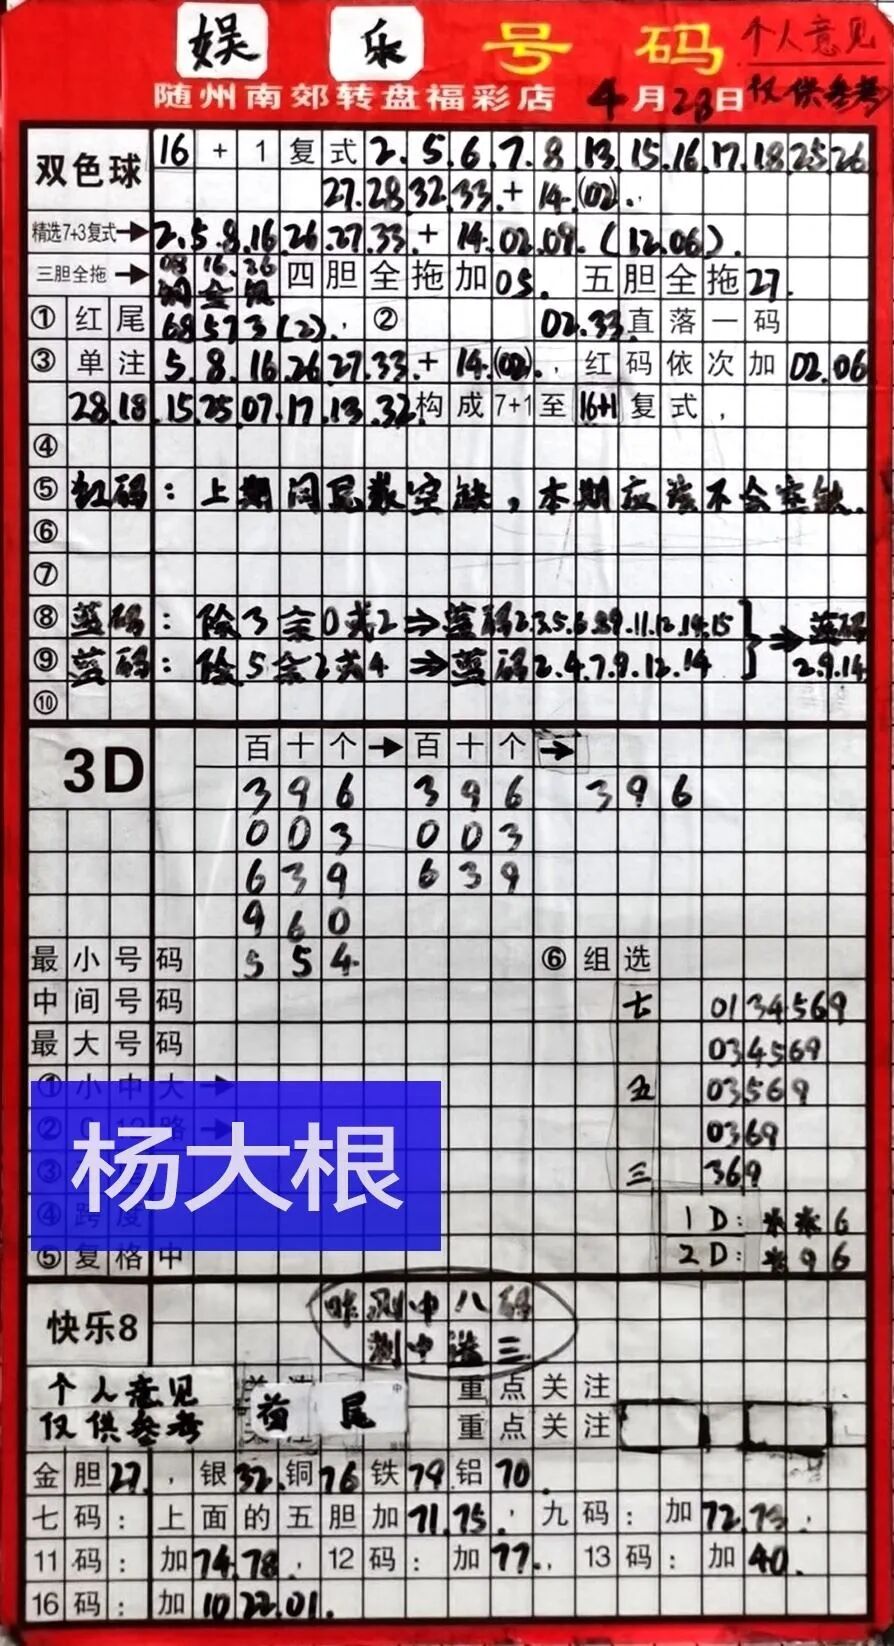 娱乐号码 个人意见
随州南郊转盘福彩店 4月28日 仅供参考
双色球 16+1复式2.5.6.7.8.13.15.16.17.18.25.26
27.28.32.33.+14.(02).
精选7+3复式→2.5.8.16.26.27.33.+14.02.09.(12.06).
三胆全拖→08 16.26 四胆全拖加05. 五胆全拖27.
铜金银
①红尾68573(2). ② 02.33.直落一码
③单注5.8.16.26.27.33.+14.(02)., 红码依次加02.06
28.18.15.25.07.17.13.32构成7+1至16+1复式,
④
⑤红码:上期同尾数空缺,本期应该不会空缺.
⑥
⑦
⑧蓝码:除3余0或2⇒蓝码2.3.5.6.8.9.11.12.14.15
⑨蓝码:除5余2或4⇒蓝码2.4.7.9.12.14
}⇒蓝码2.9.14
⑩
3D 百十个→百十个→
396 396 396
003 003
639 639
960
最小号码 554 ⑥组选
中间号码 七 0134569
最大号码 034569
①小中大→ 五 03569
② 路→ 0369
杨大根
③ 三 369
④跨度 1D:**6
⑤复格中 2D:*96
快乐8 昨测中八码
测中选三
个人意见 重点关注
仅供参考 首尾 重点关注
金胆27., 银32.铜76铁79铝70.
七码:上面的五胆加71.75., 九码:加72.73,
11码:加74.78, 12码:加77., 13码:加40.
16码:加10.22.01.